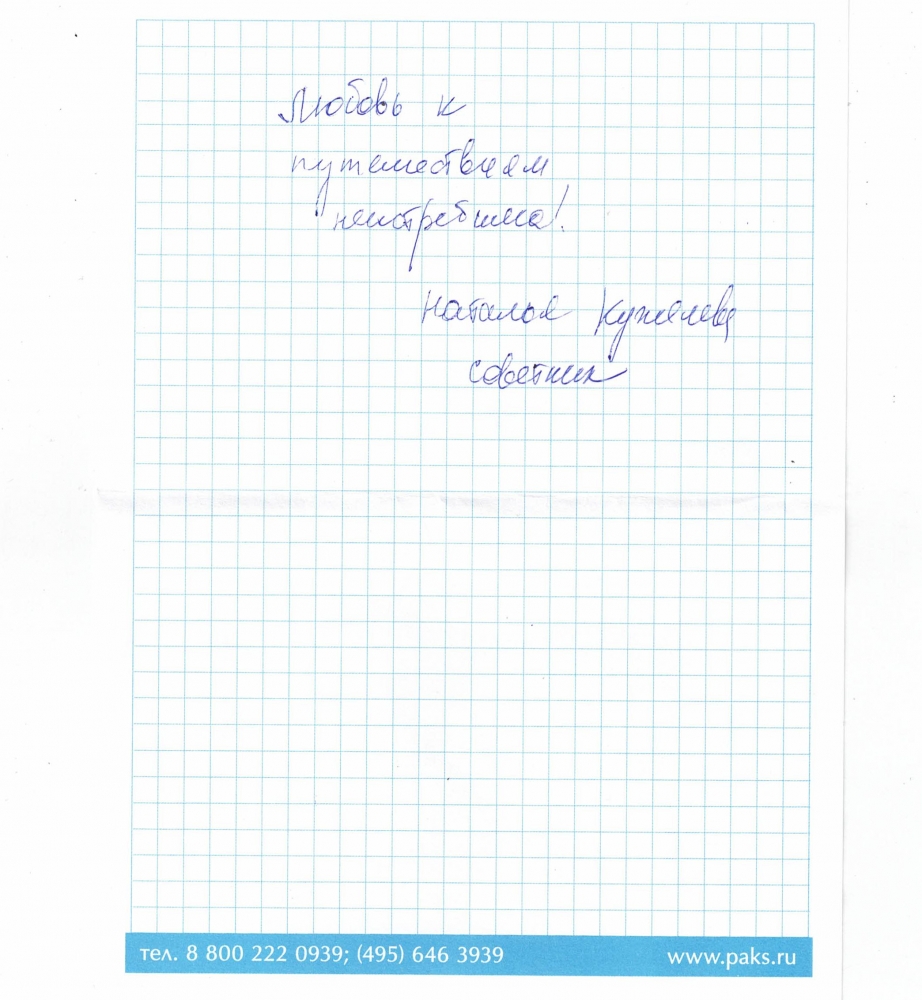 Любовь к
путешествиям
неистребима!
Наталья Кужелева
советник
тел. 8 800 222 0939; (495) 646 3939
www.paks.ru